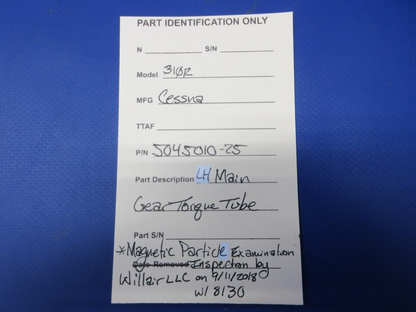 PART IDENTIFICATION ONLY
N S/N
Model 310R
MFG Cessna
TTAF
P/N 5045010-25
Part Description LH Main
Gear Torque Tube
Part S/N
*Magnetic Particle Examination
Date Removed Inspection by
Willair LLC on 9/11/2018
w/ 8130